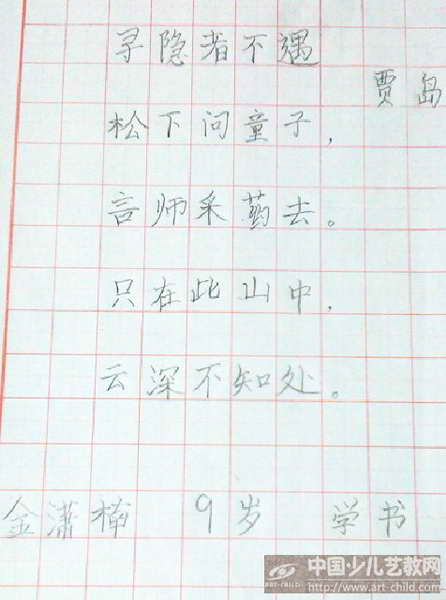 寻隐者不遇
贾岛
松下问童子，
言师采药去。
只在此山中，
云深不知处。
金潇楠 9岁 学书
中国少儿艺教网
ART-CHILD
http://www.art-child.com